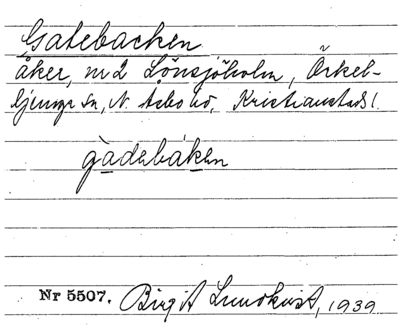 Gatebacken
åker, m2 Lönsjöholm, Örkel-
ljunga sn, N. Åsbo hd, Kristianstads l.
gàdebáken
Nr 5507. Birgit Lundkvist, 1939